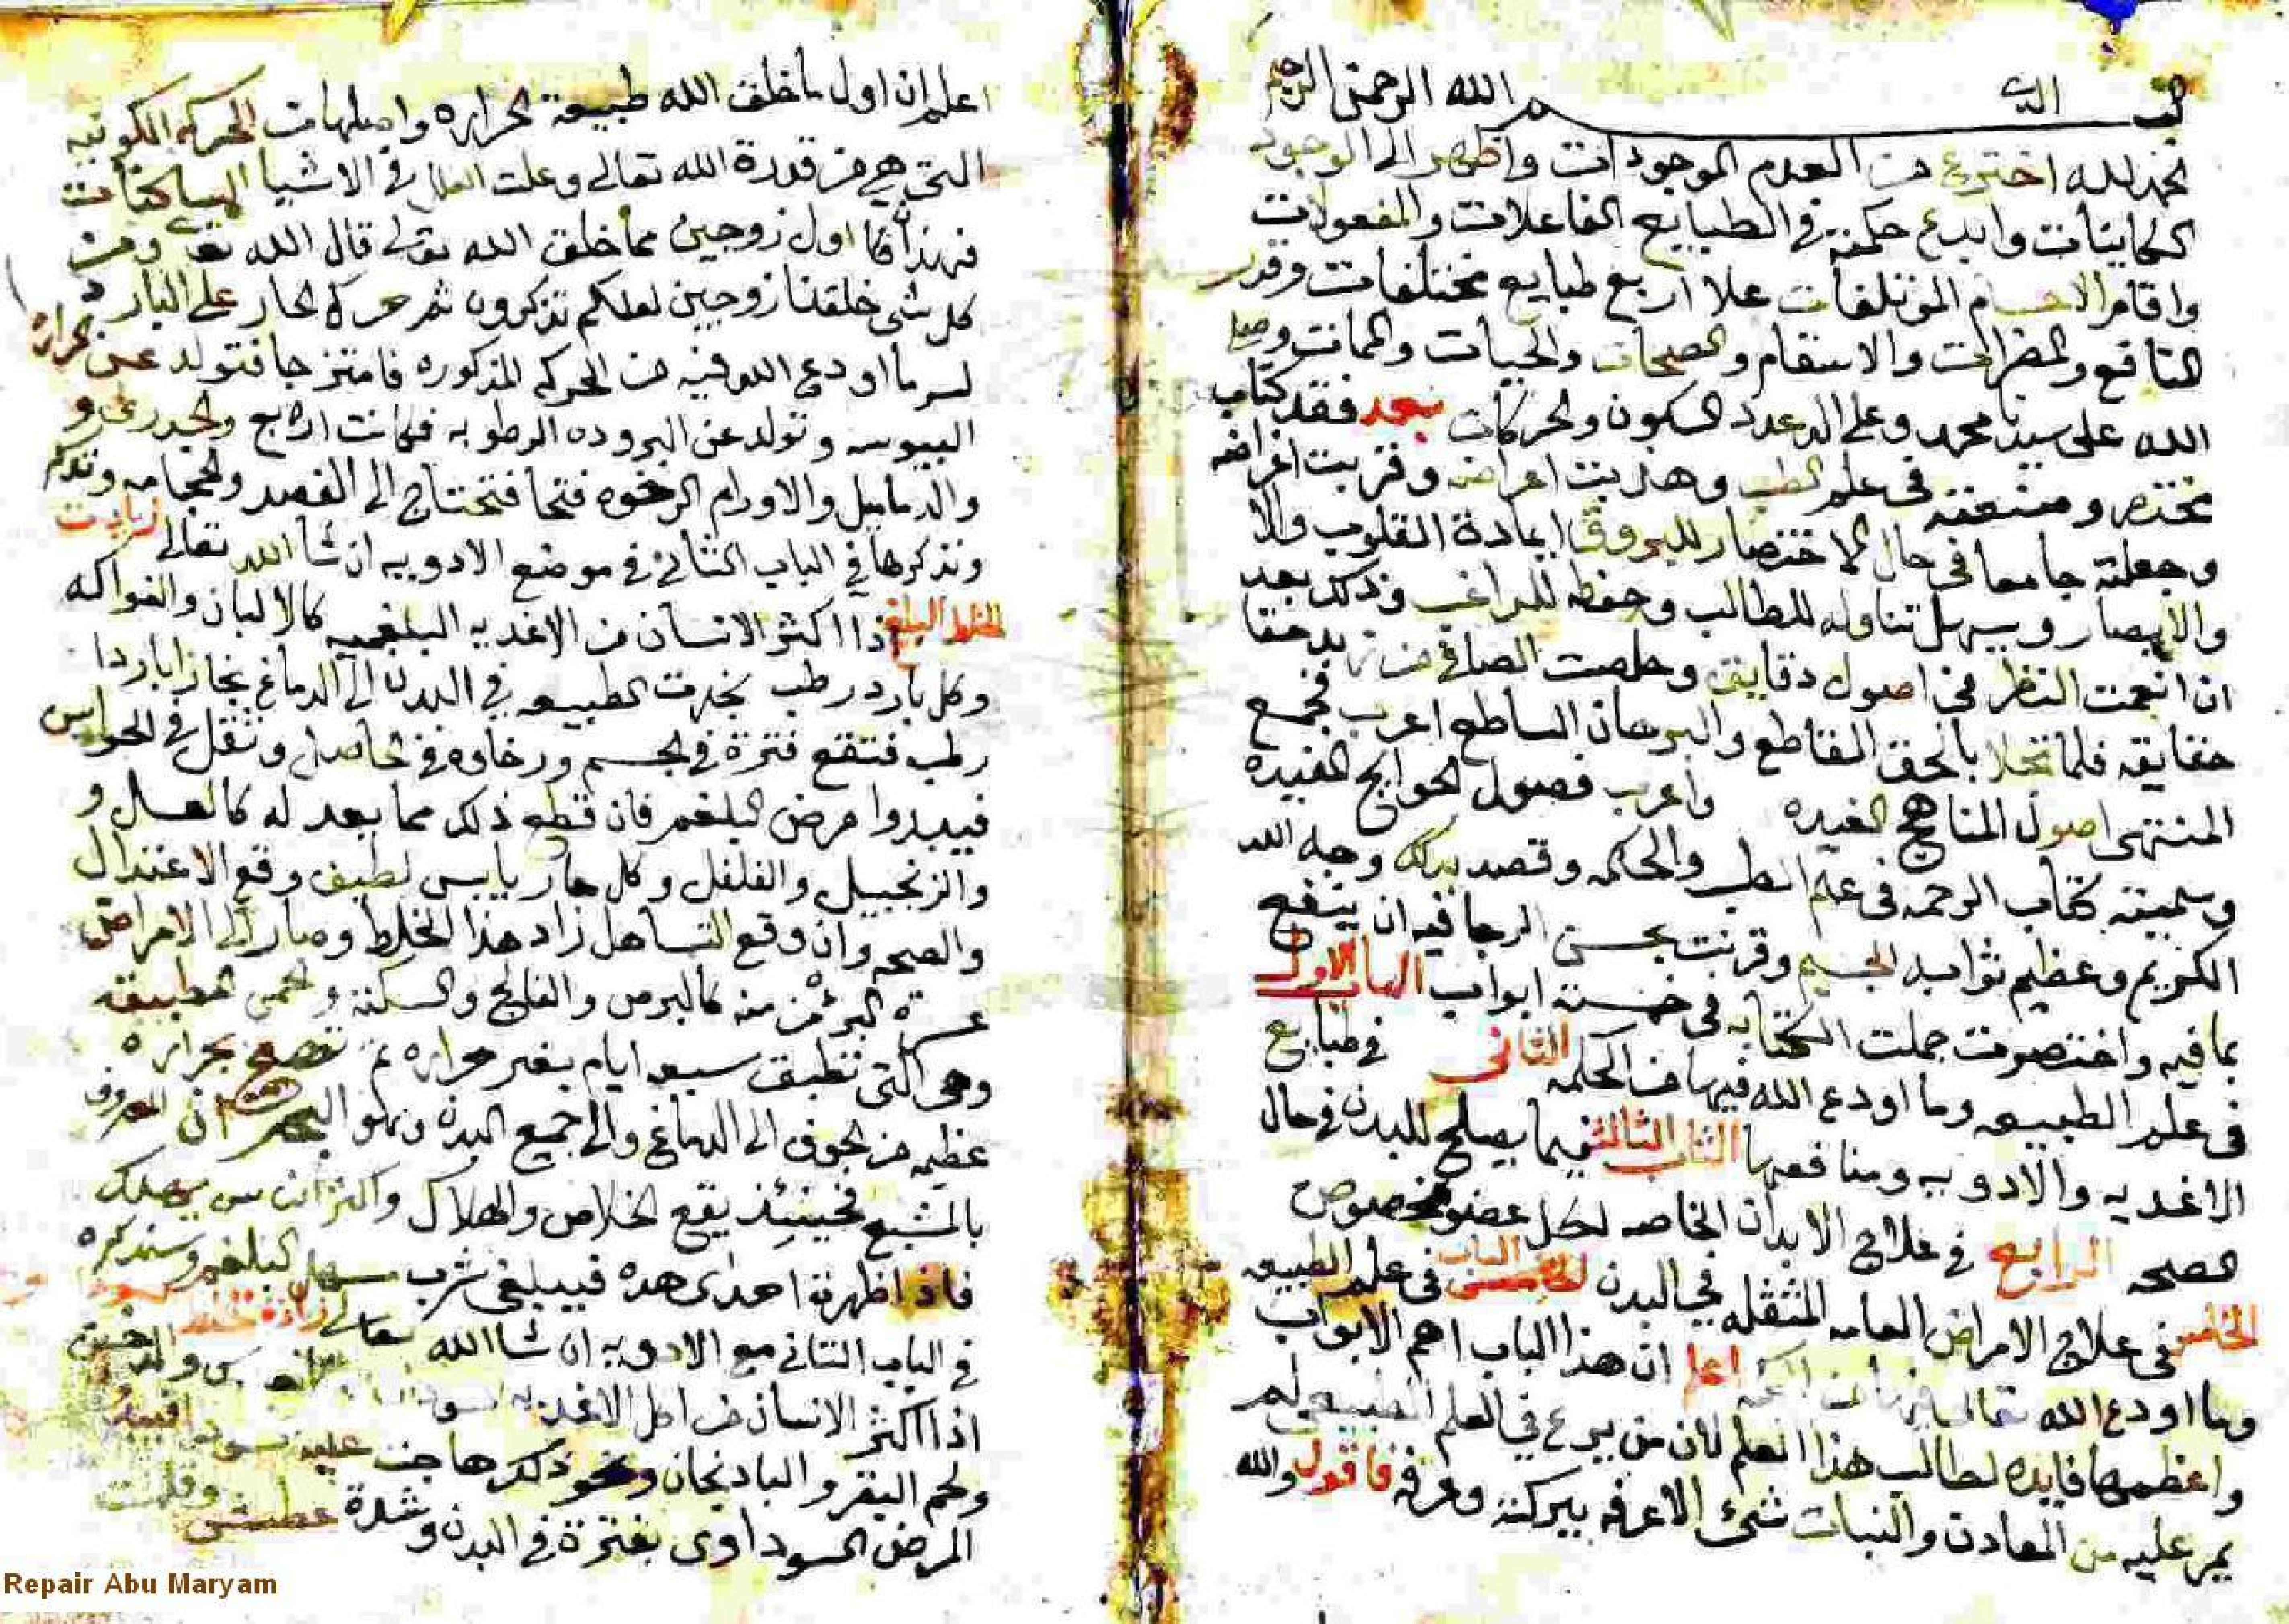 بسم الله الرحمن الرحيم
الحمد لله اخترع من العدم الموجودات واظهر الى الوجود
الكاينات وابدع حكمته في الطبايع الفاعلات والمفعولات
واقام الاجسام المؤتلفات علا اربع طبايع مختلفات وقدر
النافع والمضرات والاسقام والصحات والحيات والممات وصلا
الله على سيدنا محمد وعلى اله عدد السكون والحركات بعد فقد كتاب
مختصر و في علم الطب وهذبت اعراضه وقربت اغراضه
وجعلته جامعا في حال الاختصار القلوب والا
والابصار ويسهل تناوله للطالب وحفظه للراغب وذلك بعد
ان انعمت النظر في اصول دقايق وخلصت الصافي من زبد حقا
حقايقه فلما تحلا بالحق القاطع والبرهان الساطع اعرب فجمع
المنتهى اصول المناهج الفيده واعرب فصول الحوايج المفيده
وسميته كتاب الرحمه في علم الطب والحكمه وقصد بذلك وجه الله
الكريم وعظيم ثوابه الجسيم وقرنت بحسن الرجا فيه ان ينفع
بما فيه واختصرت جملت الكتابه في خمسة ابواب الباب الاول
في علم الطبيعه وما اودع الله فيها من الحكمه الثاني في طبايع
الاغديه والادويه ومنافعها الثاب الثالث فيما يصلح للبدن في حال
الصحه الرابع في علاج الابدان الخاصه لكل عضو مخصوص
الخامس في علاج الامراض العامه المتنقله في البدن الباب في علم الطبيعه
وما اودع الله تعالى فيها من اعلم ان هذا الباب اهم الابواب
واعظمها فايده لطالب هذا العلم لان من يبرع في العلم الطبيعي لم
يمر عليه من المعادن والنبات شيء الا عرفه ببركته وعرفه فاقول والله
اعلم ان اول ما خلق الله طبيعة الحراره واصلها من الحركه الكونيه
التي هي من قدرة الله تعالى وعلت العلل في الاشيا الساكنات
فهذان كانا اول زوجين مما خلق الله تعالى قال الله تعالى ومن
كل شي خلقنا زوجين لعلكم تذكرون ثم حركة الحار على البارد
لسر ما اودع الله فيه من الحركه المذكوره فامتزجا فتولد عن الحراره
اليبوسه وتولد عن البروده الرطوبه فكانت اربع والجدري و
والدماميل والاورام الرخوه فتحتاج الى الفصد والحجامه
ونذكرها في الباب الثاني في موضع الادويه ان شا الله تعالى زيادت
الخلط البلغم اذا اكثر الانسان من الاغديه البلغميه كالالبان والفواكه
وكل بارد رطب بخرت الطبيعه في البدن الى الدماغ بخارا باردا
رطب فتقع فترة في الجسم ورخاوه في المفاصل وثقل في الحواس
فيبدوا مرض البلغم فان قطع ذلك مما يعدله كالعسل و
والزنجبيل والفلفل وكل حار يابس لطيف وقع الاعتدال
والصحه وان وقع التساهل زاد هذا الخلط وصار الى الامراض
عسرة البرئ منه كالبرص والفالج والسكته والحمى المطبيقه
وهي التي تطبق سبعه ايام بغير حراره ثم تفصح بحراره
عظيمه من الجوف الى الدماغ والى جميع البدن وهو المعروف
بالمشبع فحينئذ يقع الخلاص والهلاك واكثر الناس يهلك
فاذا ظهرت احدى هذه فيبلغى شرب مسهل البلغم وسنذكره
في الباب الثاني مع الادويه ان شا الله تعالى زيادة الخلط
اذا اكثر الانسان من اكل الاغديه
ولحم البقر والبادنجان ونحو ذلك هاجت عليه
المرض السوداوى بفترة في البدن وشدة عطش وقلت
Repair Abu Maryam